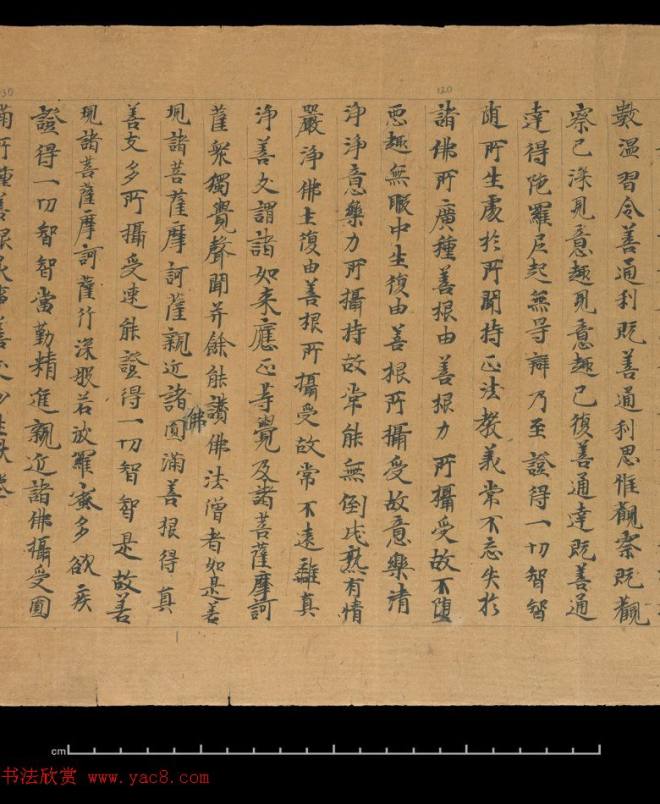 數溫習令善通利既善通利思惟觀察既觀
察已深見意趣見意趣已復善通達既善通
達得陁羅尼起無㝵辯乃至證得一切智智
隨所生處於所聞持正法教義常不忘失於
諸佛所廣種善根由善根力所攝受故不墮
惡趣無暇中生復由善根所攝受故意樂清
淨淨意樂力所攝持故常能無倒成熟有情
嚴淨佛土復由善根所攝受故常不遠離真
淨善友謂諸如來應正等覺及諸菩薩摩訶
薩衆獨覺聲聞并餘能讚佛法僧者如是善
現諸菩薩摩訶薩親近諸佛圓滿善根得真
善友多所攝受速能證得一切智智是故善
現諸菩薩摩訶薩行深般若波羅蜜多欲疾
證得一切智智當勤精進親近諸佛攝受圓
滿所種善根承事善友
120
30
cm
书法欣赏 www.yac8.com